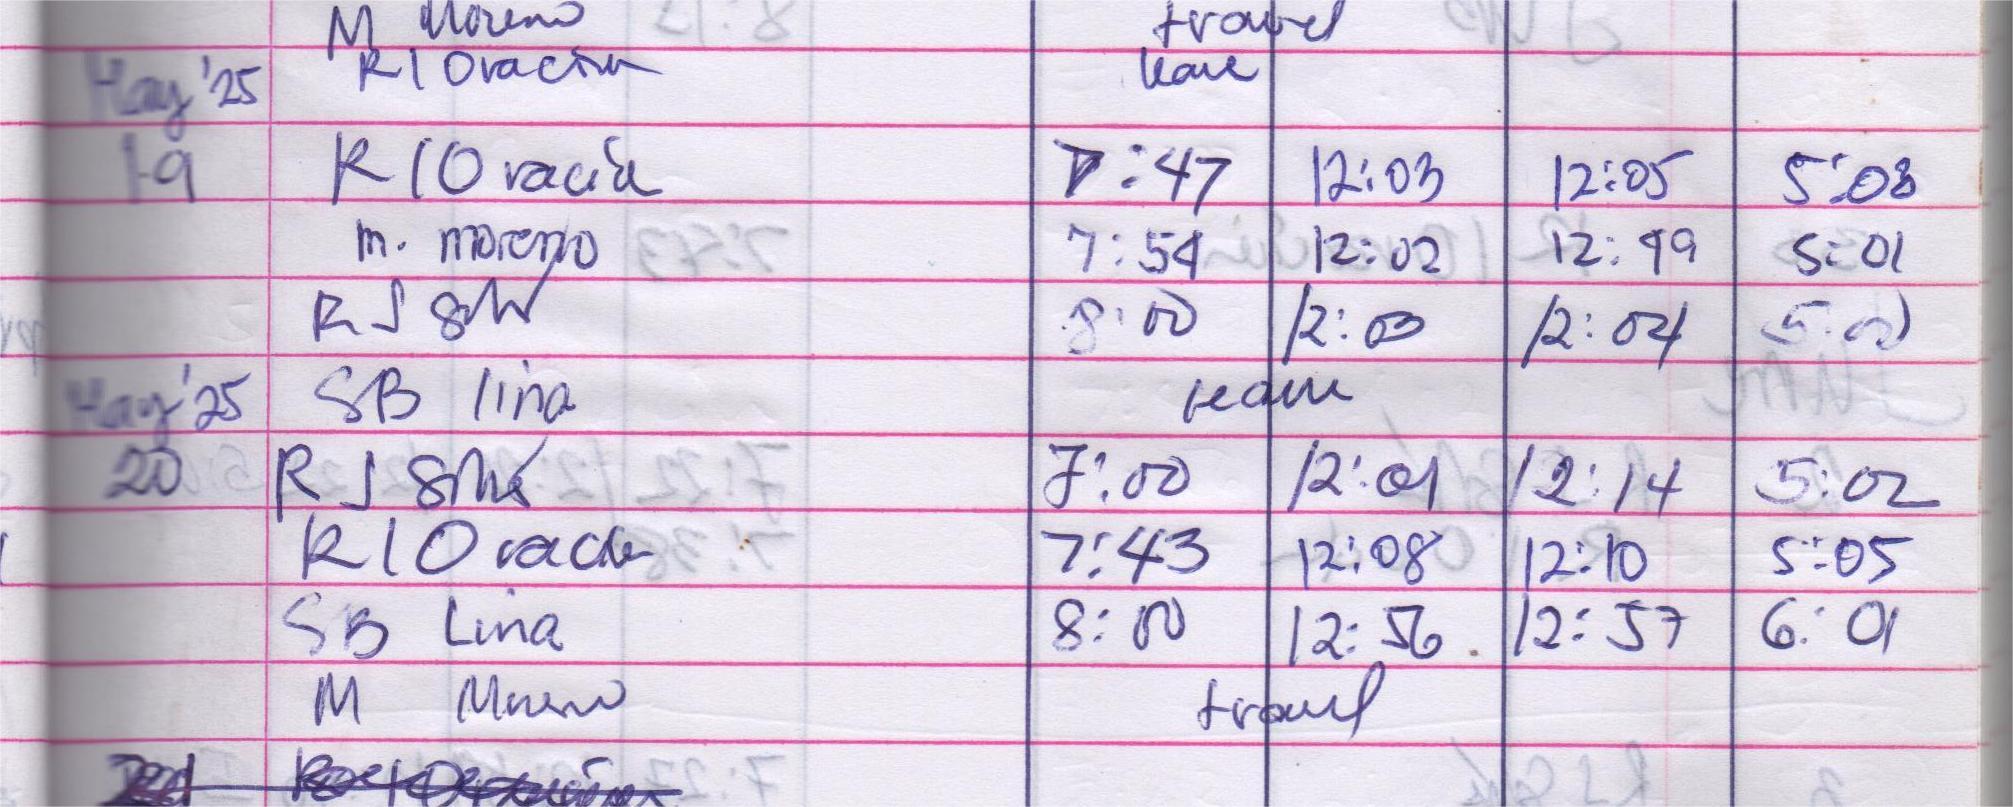 M Moreno travel
May '25 R I Oracion leave
19 R I Oracion 7:47 12:03 12:05 5:03
m. moreno 7:54 12:02 12:49 5:01
R J 8:00 12:03 12:04 5:01
May '25 SB lina leave
20 R J 7:00 12:01 12:14 5:02
R I Oracion 7:43 12:08 12:10 5:05
SB Lina 8:00 12:56 12:57 6:01
M Moreno travel